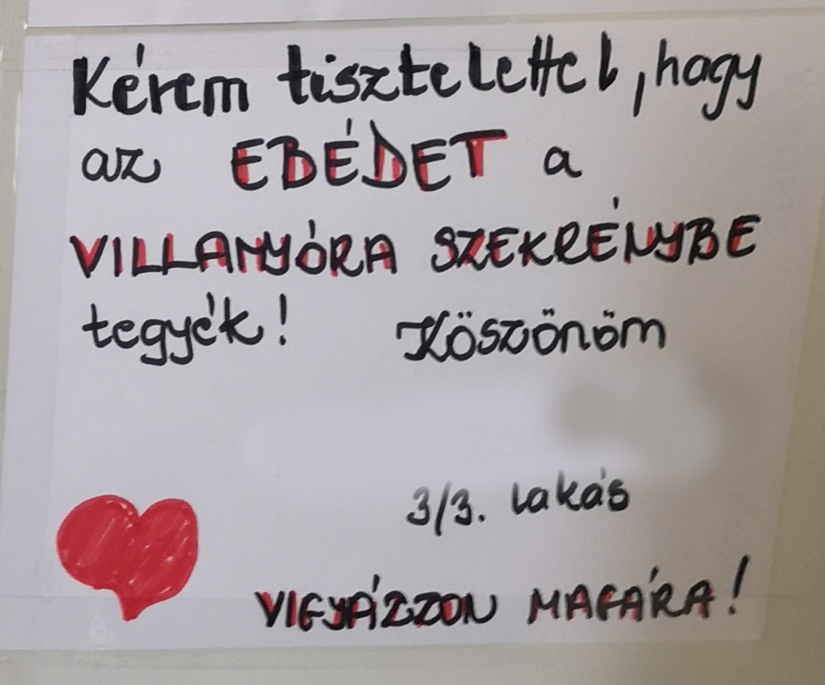 Kérem tisztelettel, hagy
az EBÉDET a
VILLANYÓRA SZEKRÉNYBE
tegyék! Köszönöm
3/3. lakás
VIGYÁZZON MAGÁRA!